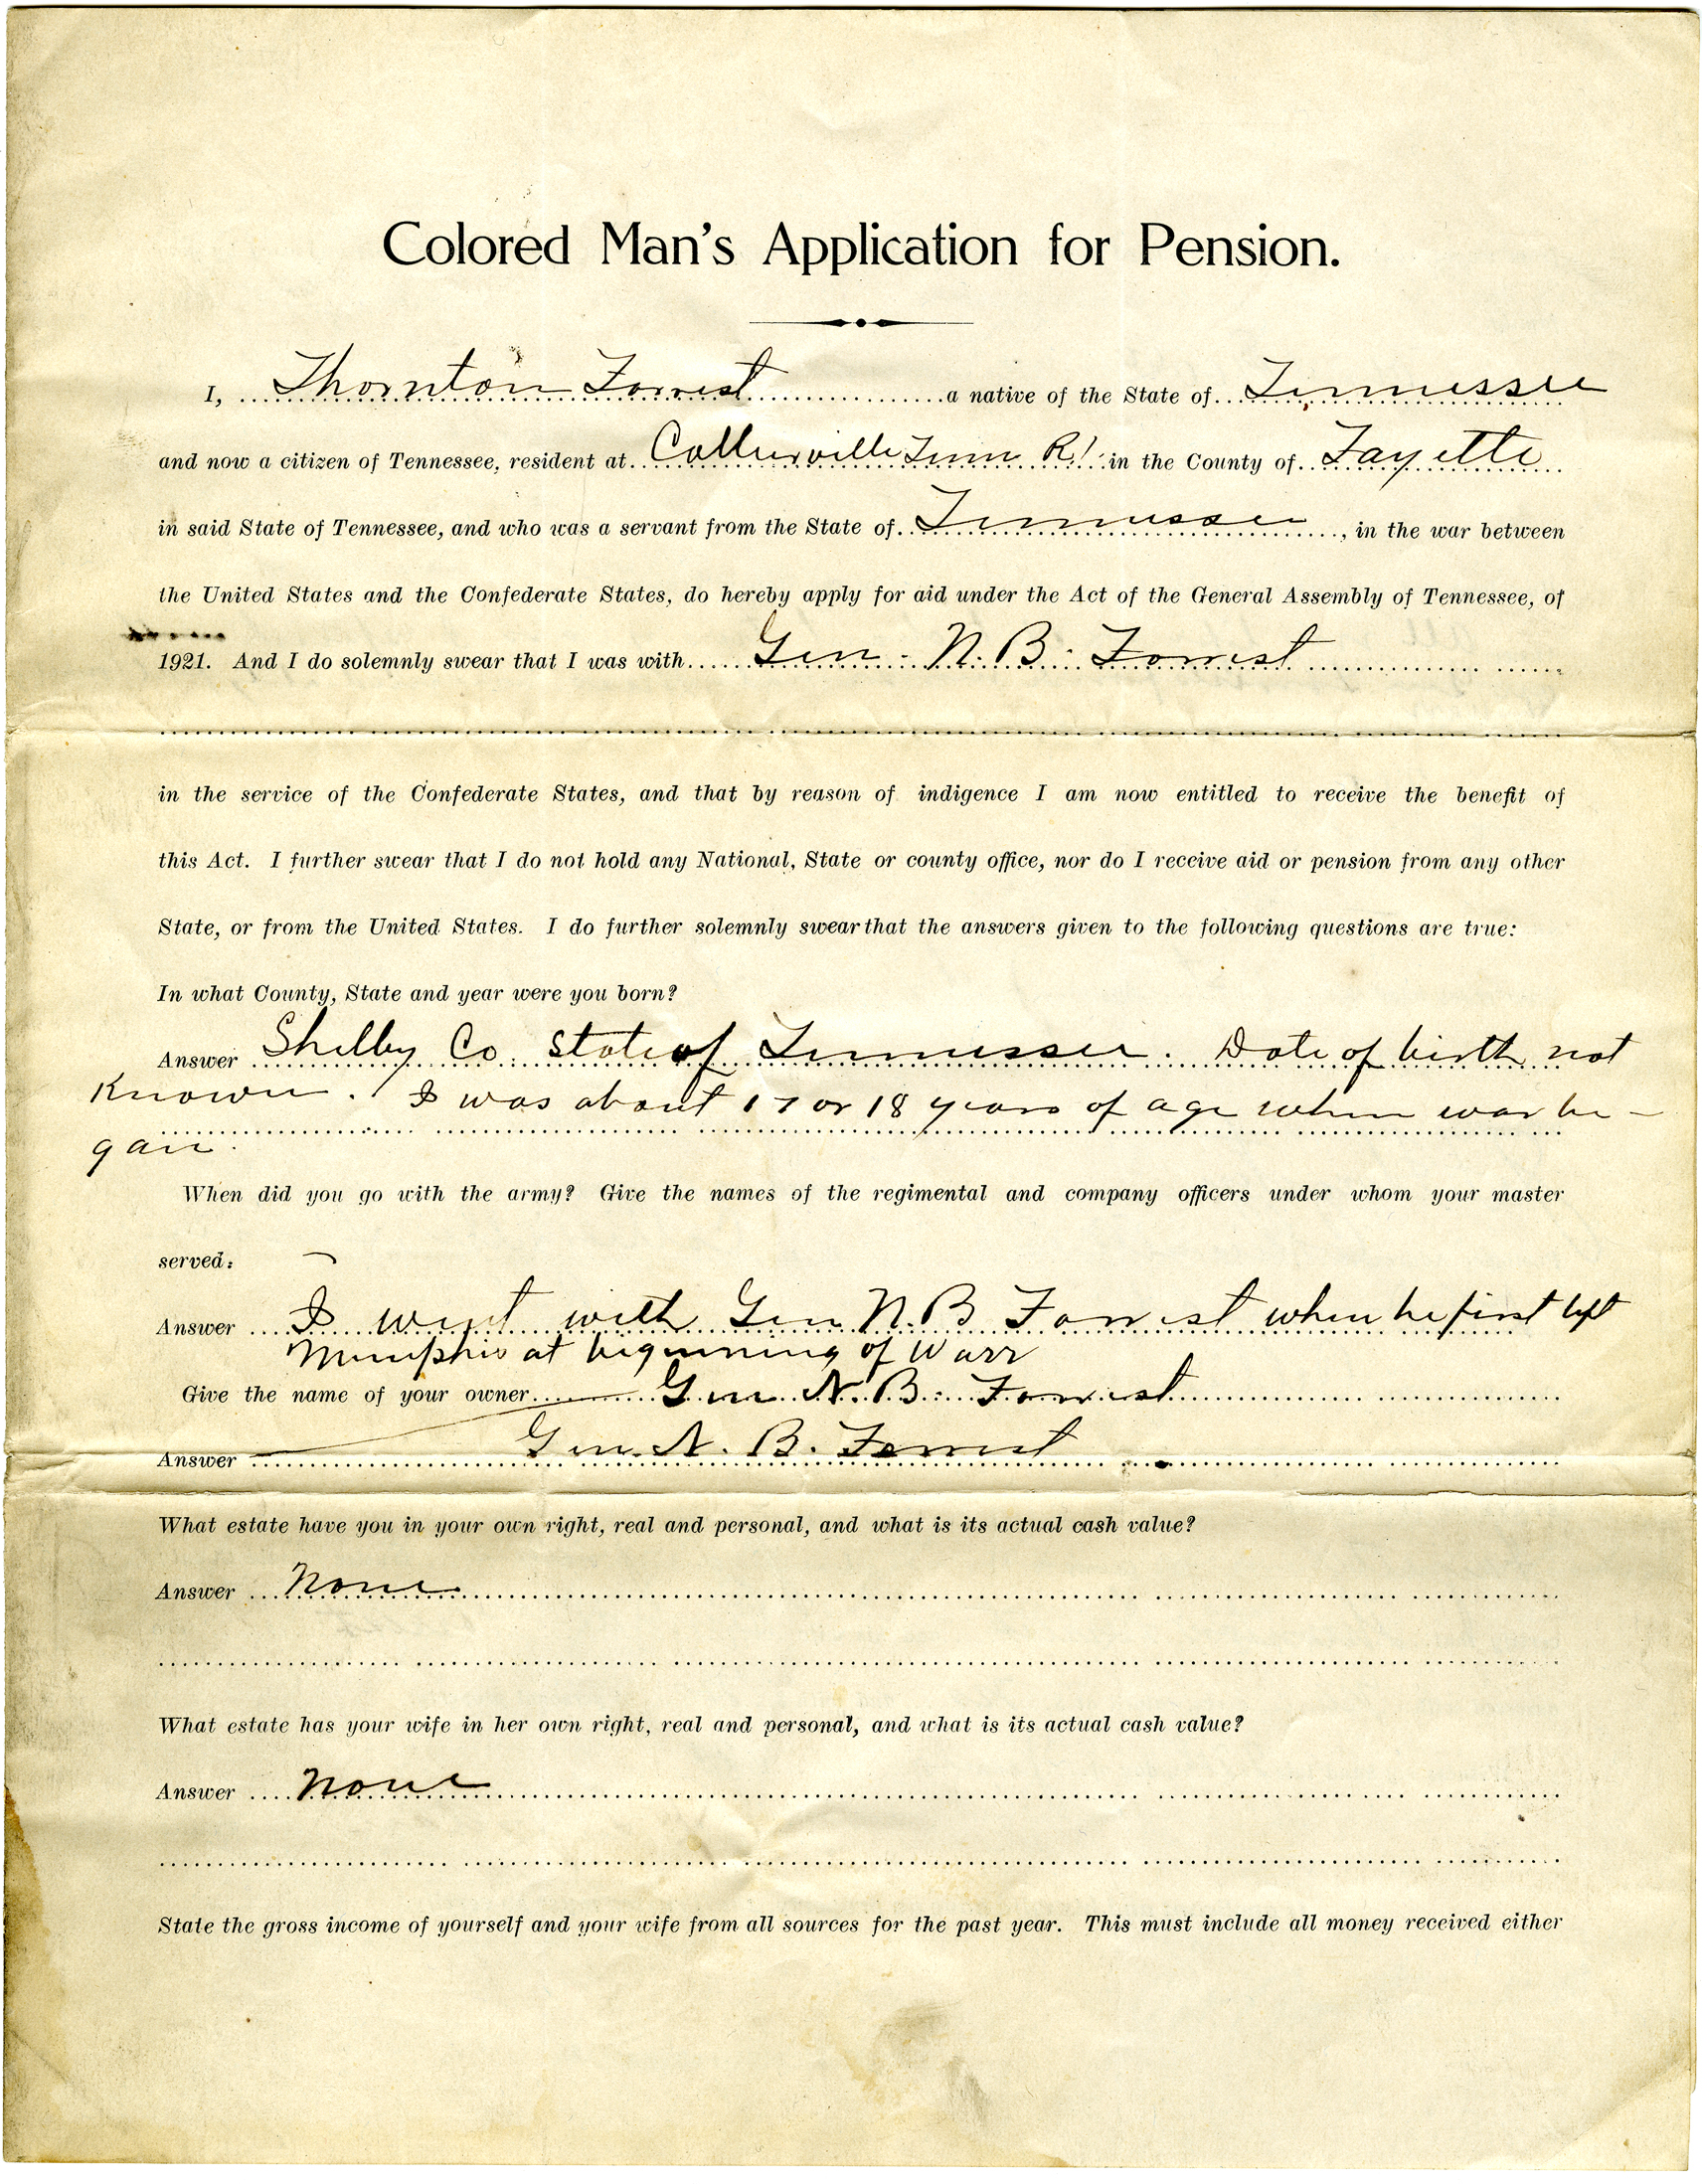 Colored Man's Application for Pension.
I, Thornton Forrest a native of the State of Tennessee
and now a citizen of Tennessee, resident at Collierville Tenn R1 in the County of Fayette
in said State of Tennessee, and who was a servant from the State of Tennessee, in the war between
the United States and the Confederate States, do hereby apply for aid under the Act of the General Assembly of Tennessee, of
1921. And I do solemnly swear that I was with Gen. N. B. Forrest
in the service of the Confederate States, and that by reason of indigence I am now entitled to receive the benefit of
this Act. I further swear that I do not hold any National, State or county office, nor do I receive aid or pension from any other
State, or from the United States. I do further solemnly swear that the answers given to the following questions are true:
In what County, State and year were you born?
Answer Shelby Co. State of Tennessee. Date of birth not
Known. I was about 17 or 18 years of age when war be-
gan.
When did you go with the army? Give the names of the regimental and company officers under whom your master
served:
Answer I went with Gen N. B Forrest when he first left
Memphis at biginning of Warr
Give the name of your owner Gen N. B. Forrest
Answer Gen. N. B. Forrest
What estate have you in your own right, real and personal, and what is its actual cash value?
Answer None
What estate has your wife in her own right, real and personal, and what is its actual cash value?
Answer None
State the gross income of yourself and your wife from all sources for the past year. This must include all money received either